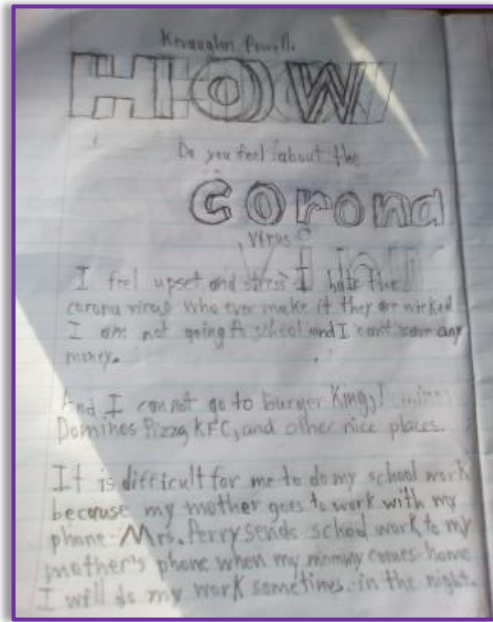 Powell
HOW
Do you feel about the
corona
virus
I feel upset and stress I hate the
corona virus who ever make it they are wicked
I am not going to school and I can't save any
money.
And I can not go to burger King,
Dominos Pizza KFC, and other nice places.
It is difficult for me to do my school work
because my mother goes to work with my
phone. Mrs. Perry sends school work to my
mother's phone when my mommy comes home
I will do my work sometimes in the night.